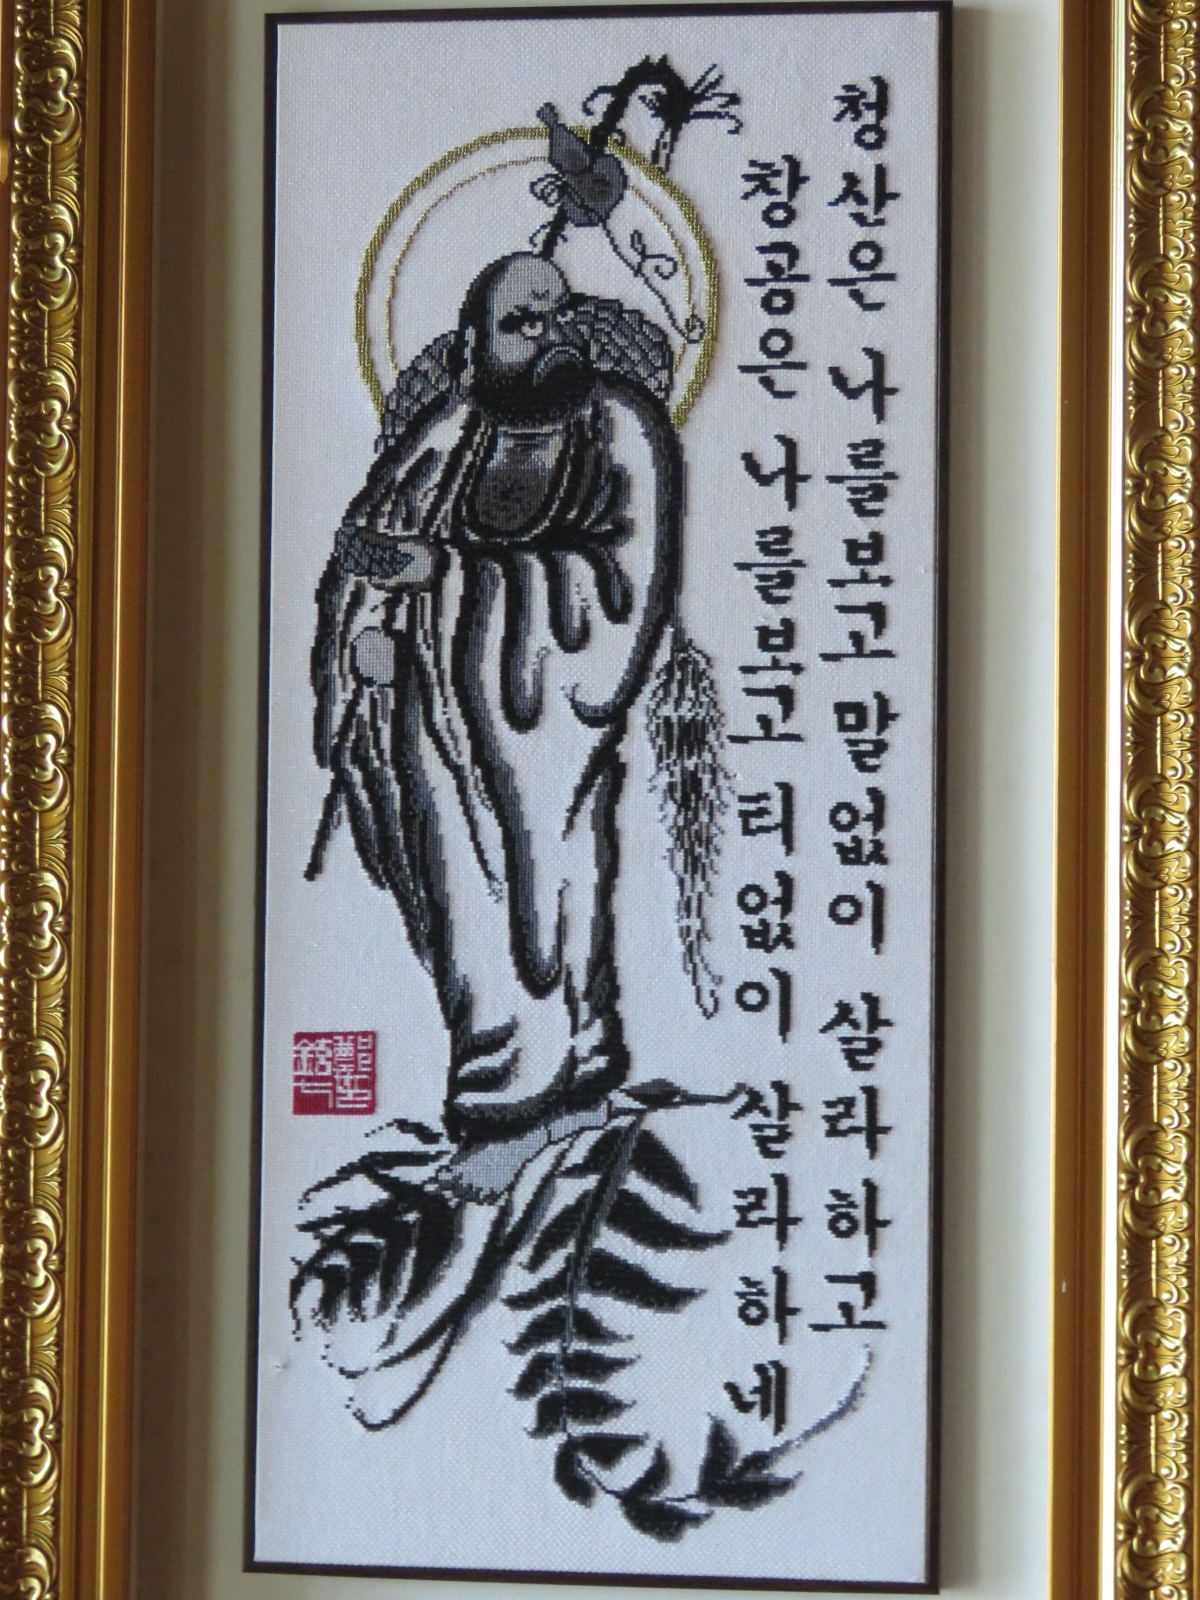 청산은 나를보고 말없이 살라하고
창공은 나를보고 티없이 살라하네